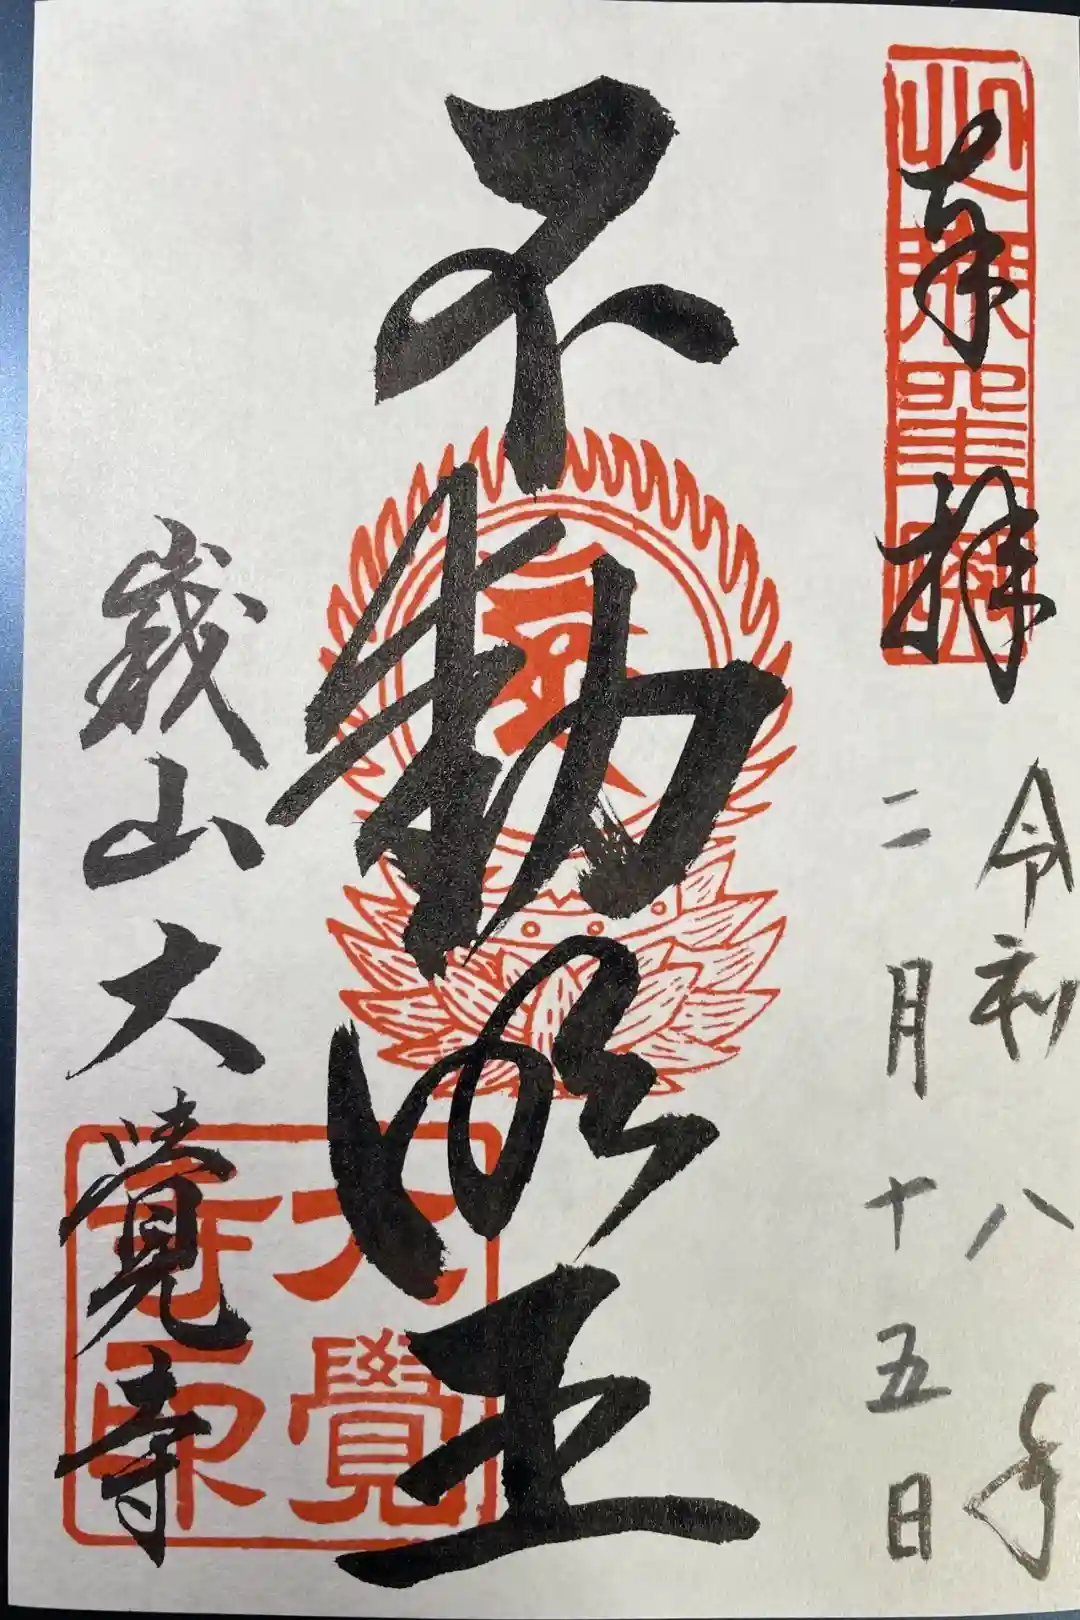 奉拝
令和八年
二月十五日
不動明王
峩山大覺寺
大覺
寺印